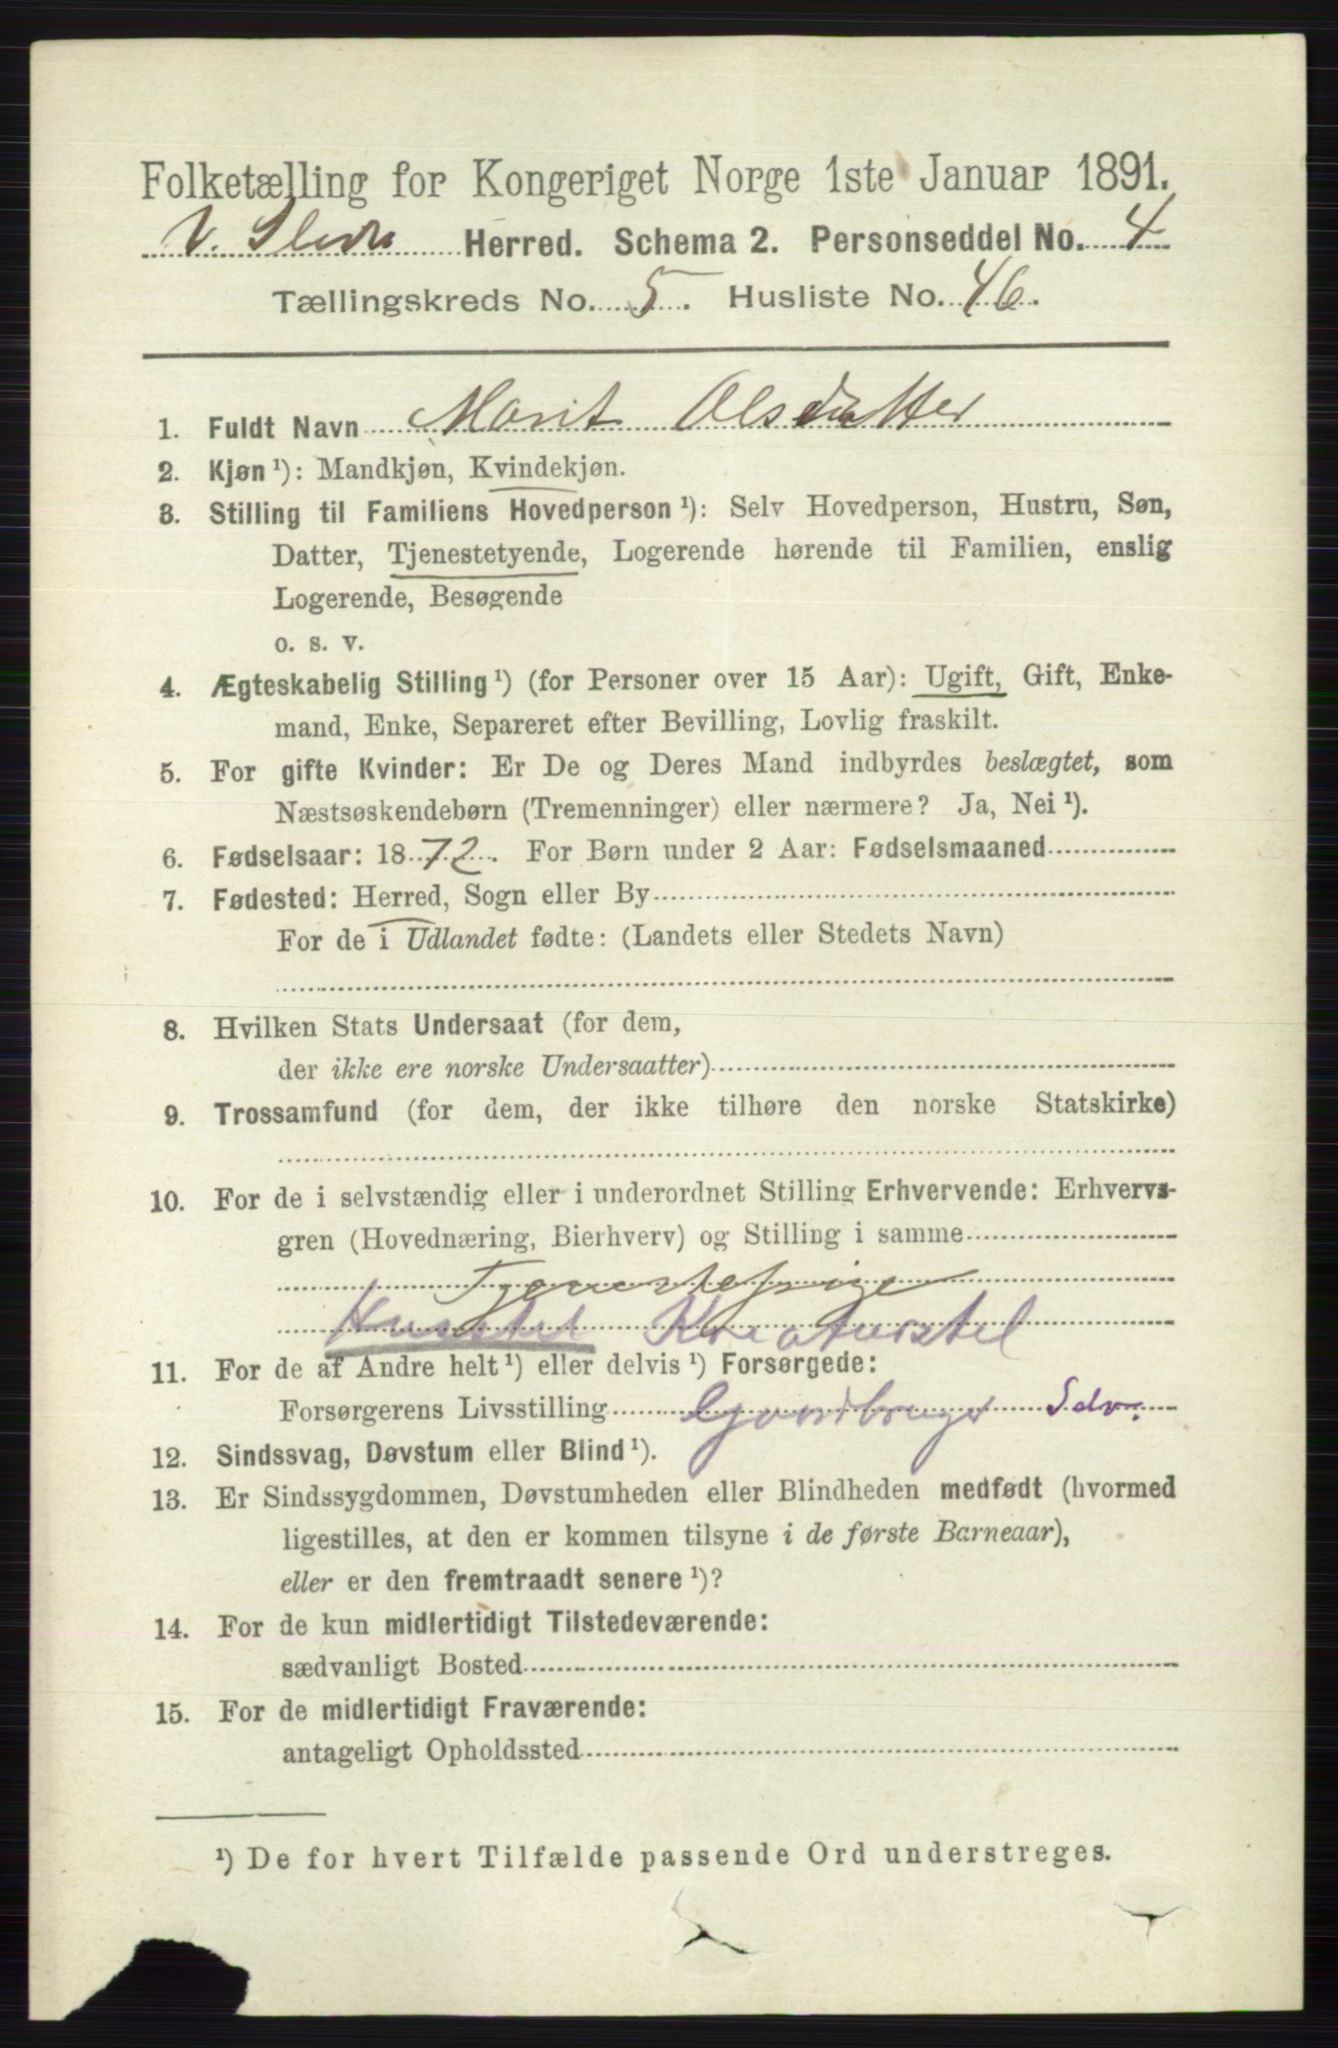 Folketælling for Kongeriget Norge 1ste Januar 1891.
V. Slidre Herred. Schema 2. Personseddel No. 4
Tællingskreds No. 5. Husliste No. 46.
1. Fuldt Navn Marit Olsdatter
2. Kjøn¹): Mandkjøn, Kvindekjøn.
3. Stilling til Familiens Hovedperson¹): Selv Hovedperson, Hustru, Søn,
Datter, Tjenestetyende, Logerende hørende til Familien, enslig
Logerende, Besøgende
o. s. v.
4. Ægteskabelig Stilling¹) (for Personer over 15 Aar): Ugift, Gift, Enke-
mand, Enke, Separeret efter Bevilling, Lovlig fraskilt.
5. For gifte Kvinder: Er De og Deres Mand indbyrdes beslægtet, som
Næstsøskendebørn (Tremenninger) eller nærmere? Ja, Nei¹).
6. Fødselsaar: 1872. For Børn under 2 Aar: Fødselsmaaned
7. Fødested: Herred, Sogn eller By
For de i Udlandet fødte: (Landets eller Stedets Navn)
8. Hvilken Stats Undersaat (for dem,
der ikke ere norske Undersaatter)
9. Trossamfund (for dem, der ikke tilhøre den norske Statskirke)
10. For de i selvstændig eller i underordnet Stilling Erhvervende: Erhvervs-
gren (Hovednæring, Bierhverv) og Stilling i samme
Tjenestepige
Husstel Kreaturstel
11. For de af Andre helt¹) eller delvis¹) Forsørgede:
Forsørgerens Livsstilling Gaardbruger Sdr.
12. Sindssvag, Døvstum eller Blind¹).
13. Er Sindssygdommen, Døvstumheden eller Blindheden medfødt (hvormed
ligestilles, at den er kommen tilsyne i de første Barneaar),
eller er den fremtraadt senere¹)?
14. For de kun midlertidigt Tilstedeværende:
sædvanligt Bosted
15. For de midlertidigt Fraværende:
antageligt Opholdssted
¹) De for hvert Tilfælde passende Ord understreges.